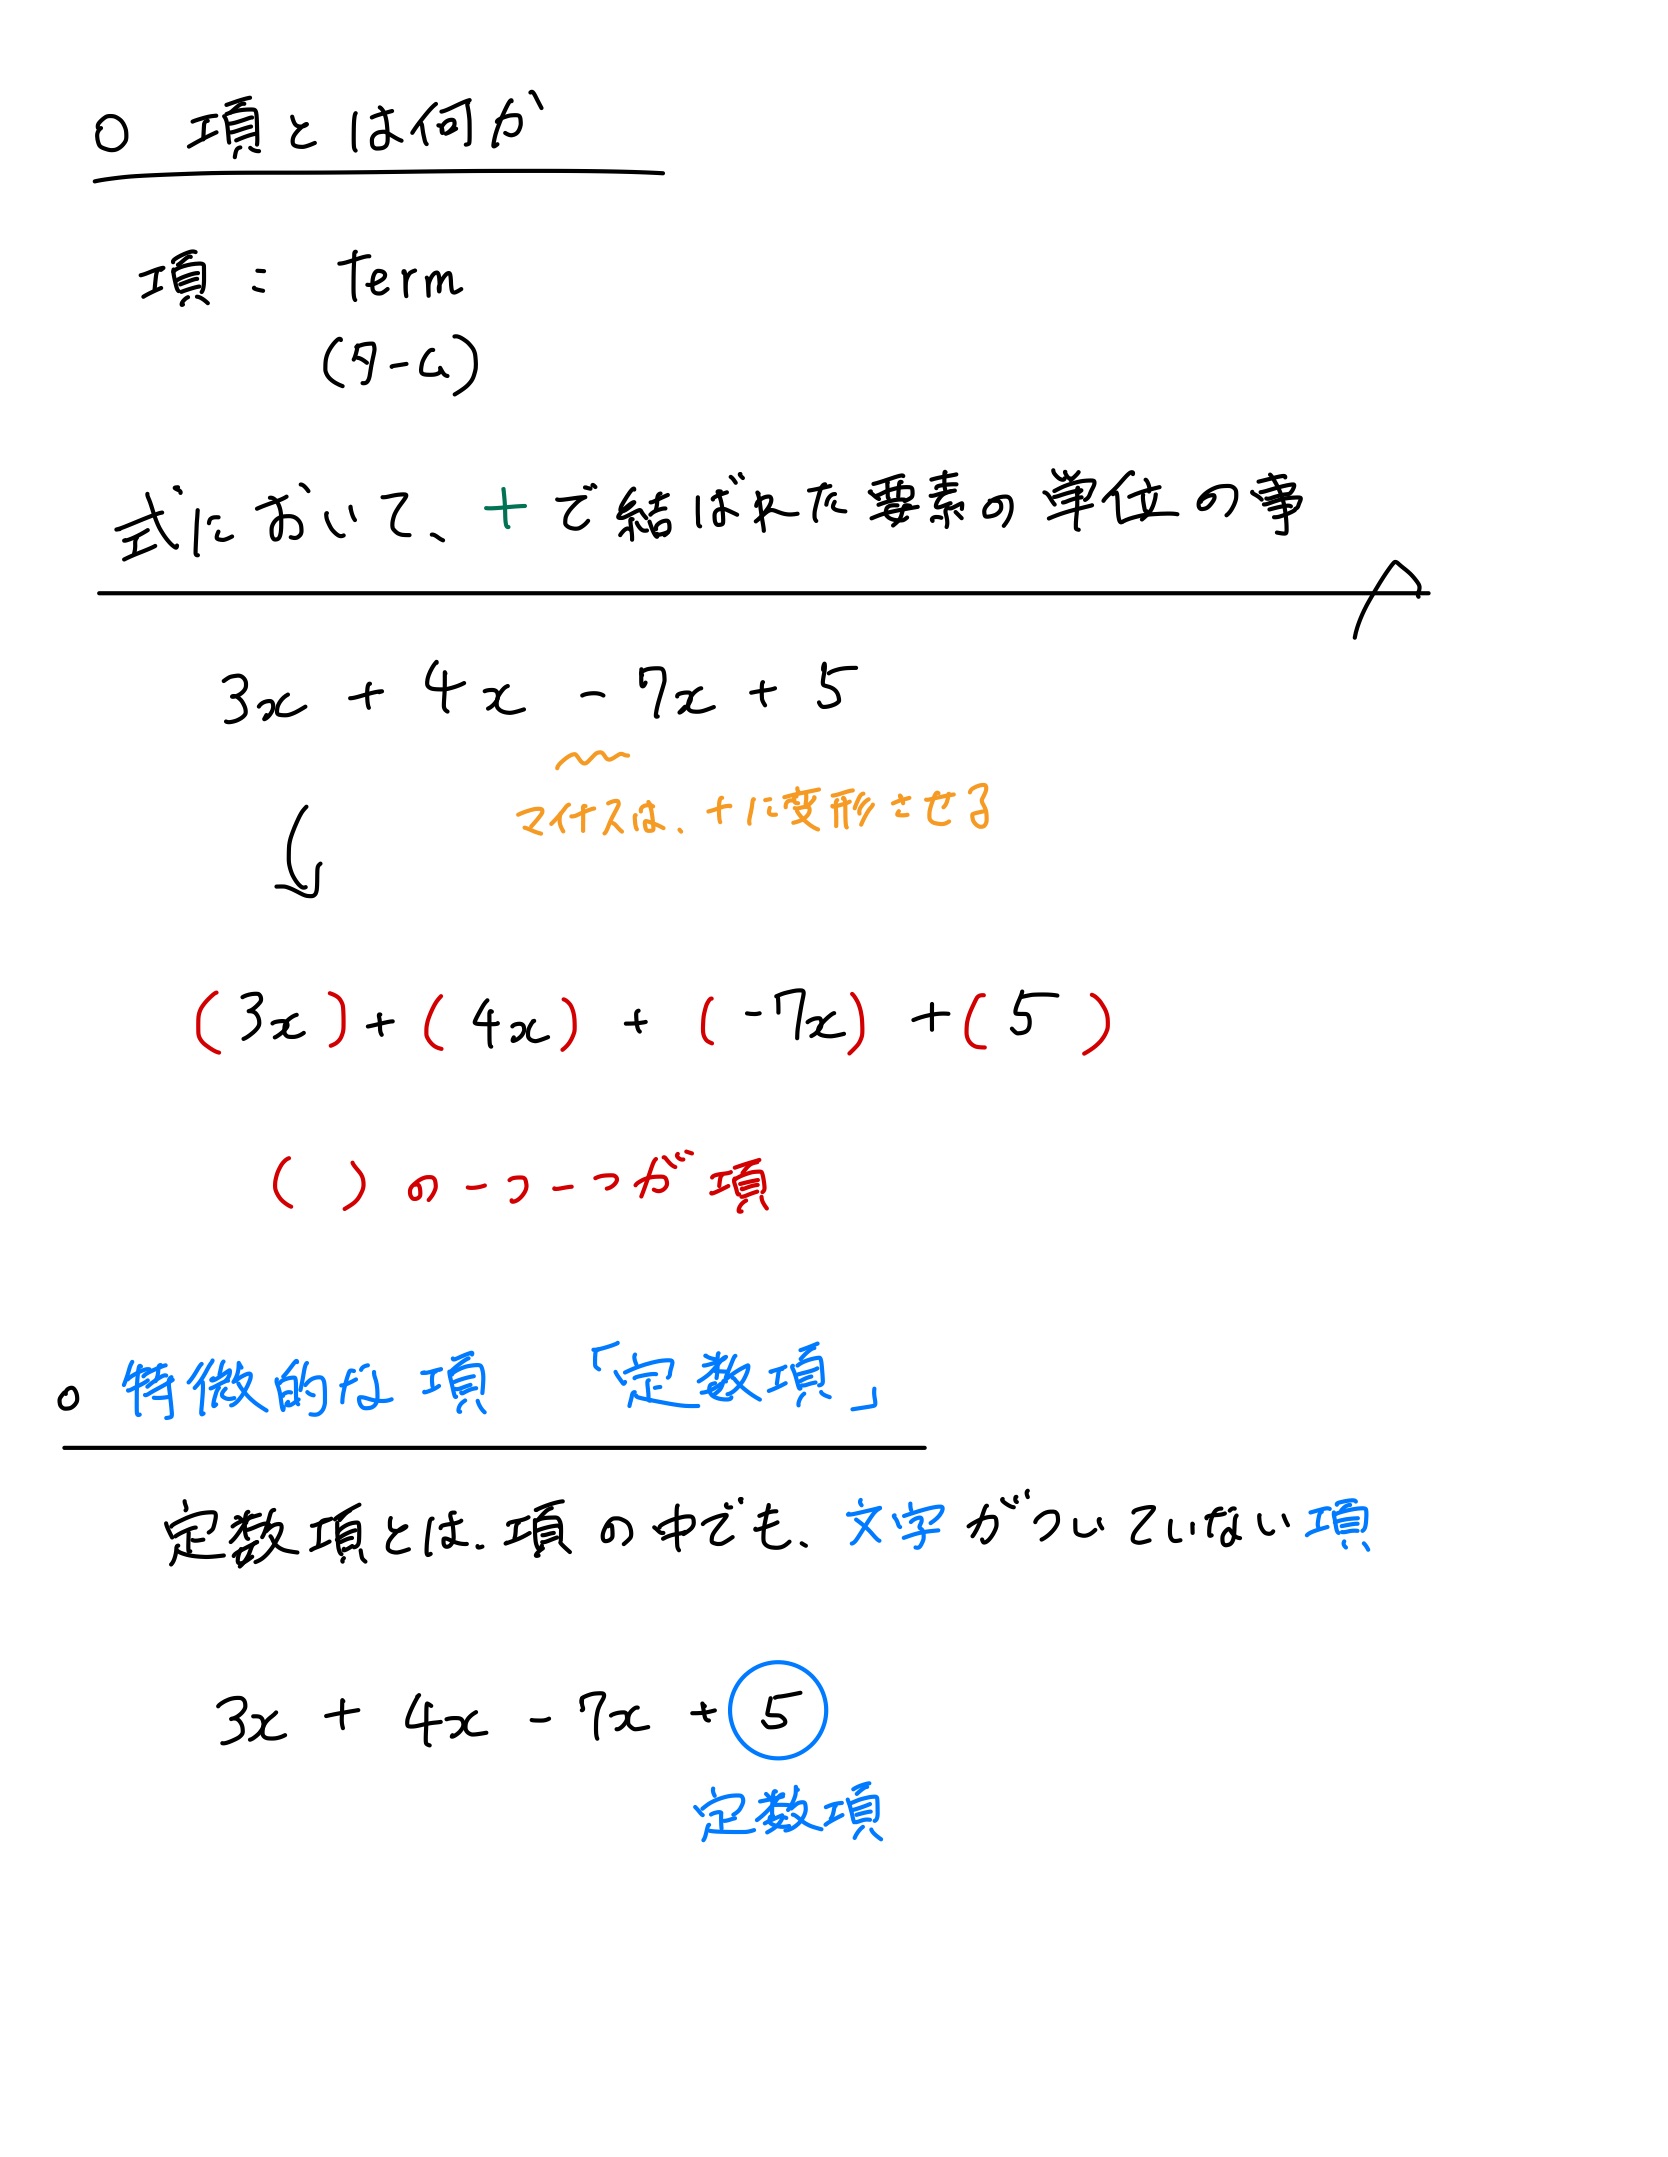 ○ 項とは何か
項 : term
(ターム)
式において、+で結ばれた要素の単位の事
3x + 4x - 7x + 5
マイナスは、+に変形させる
(3x) + (4x) + (-7x) + (5)
( )の一つ一つが項
○ 特徴的な項 「定数項」
定数項とは、項の中でも、文字がついていない項
3x + 4x - 7x + 5
定数項